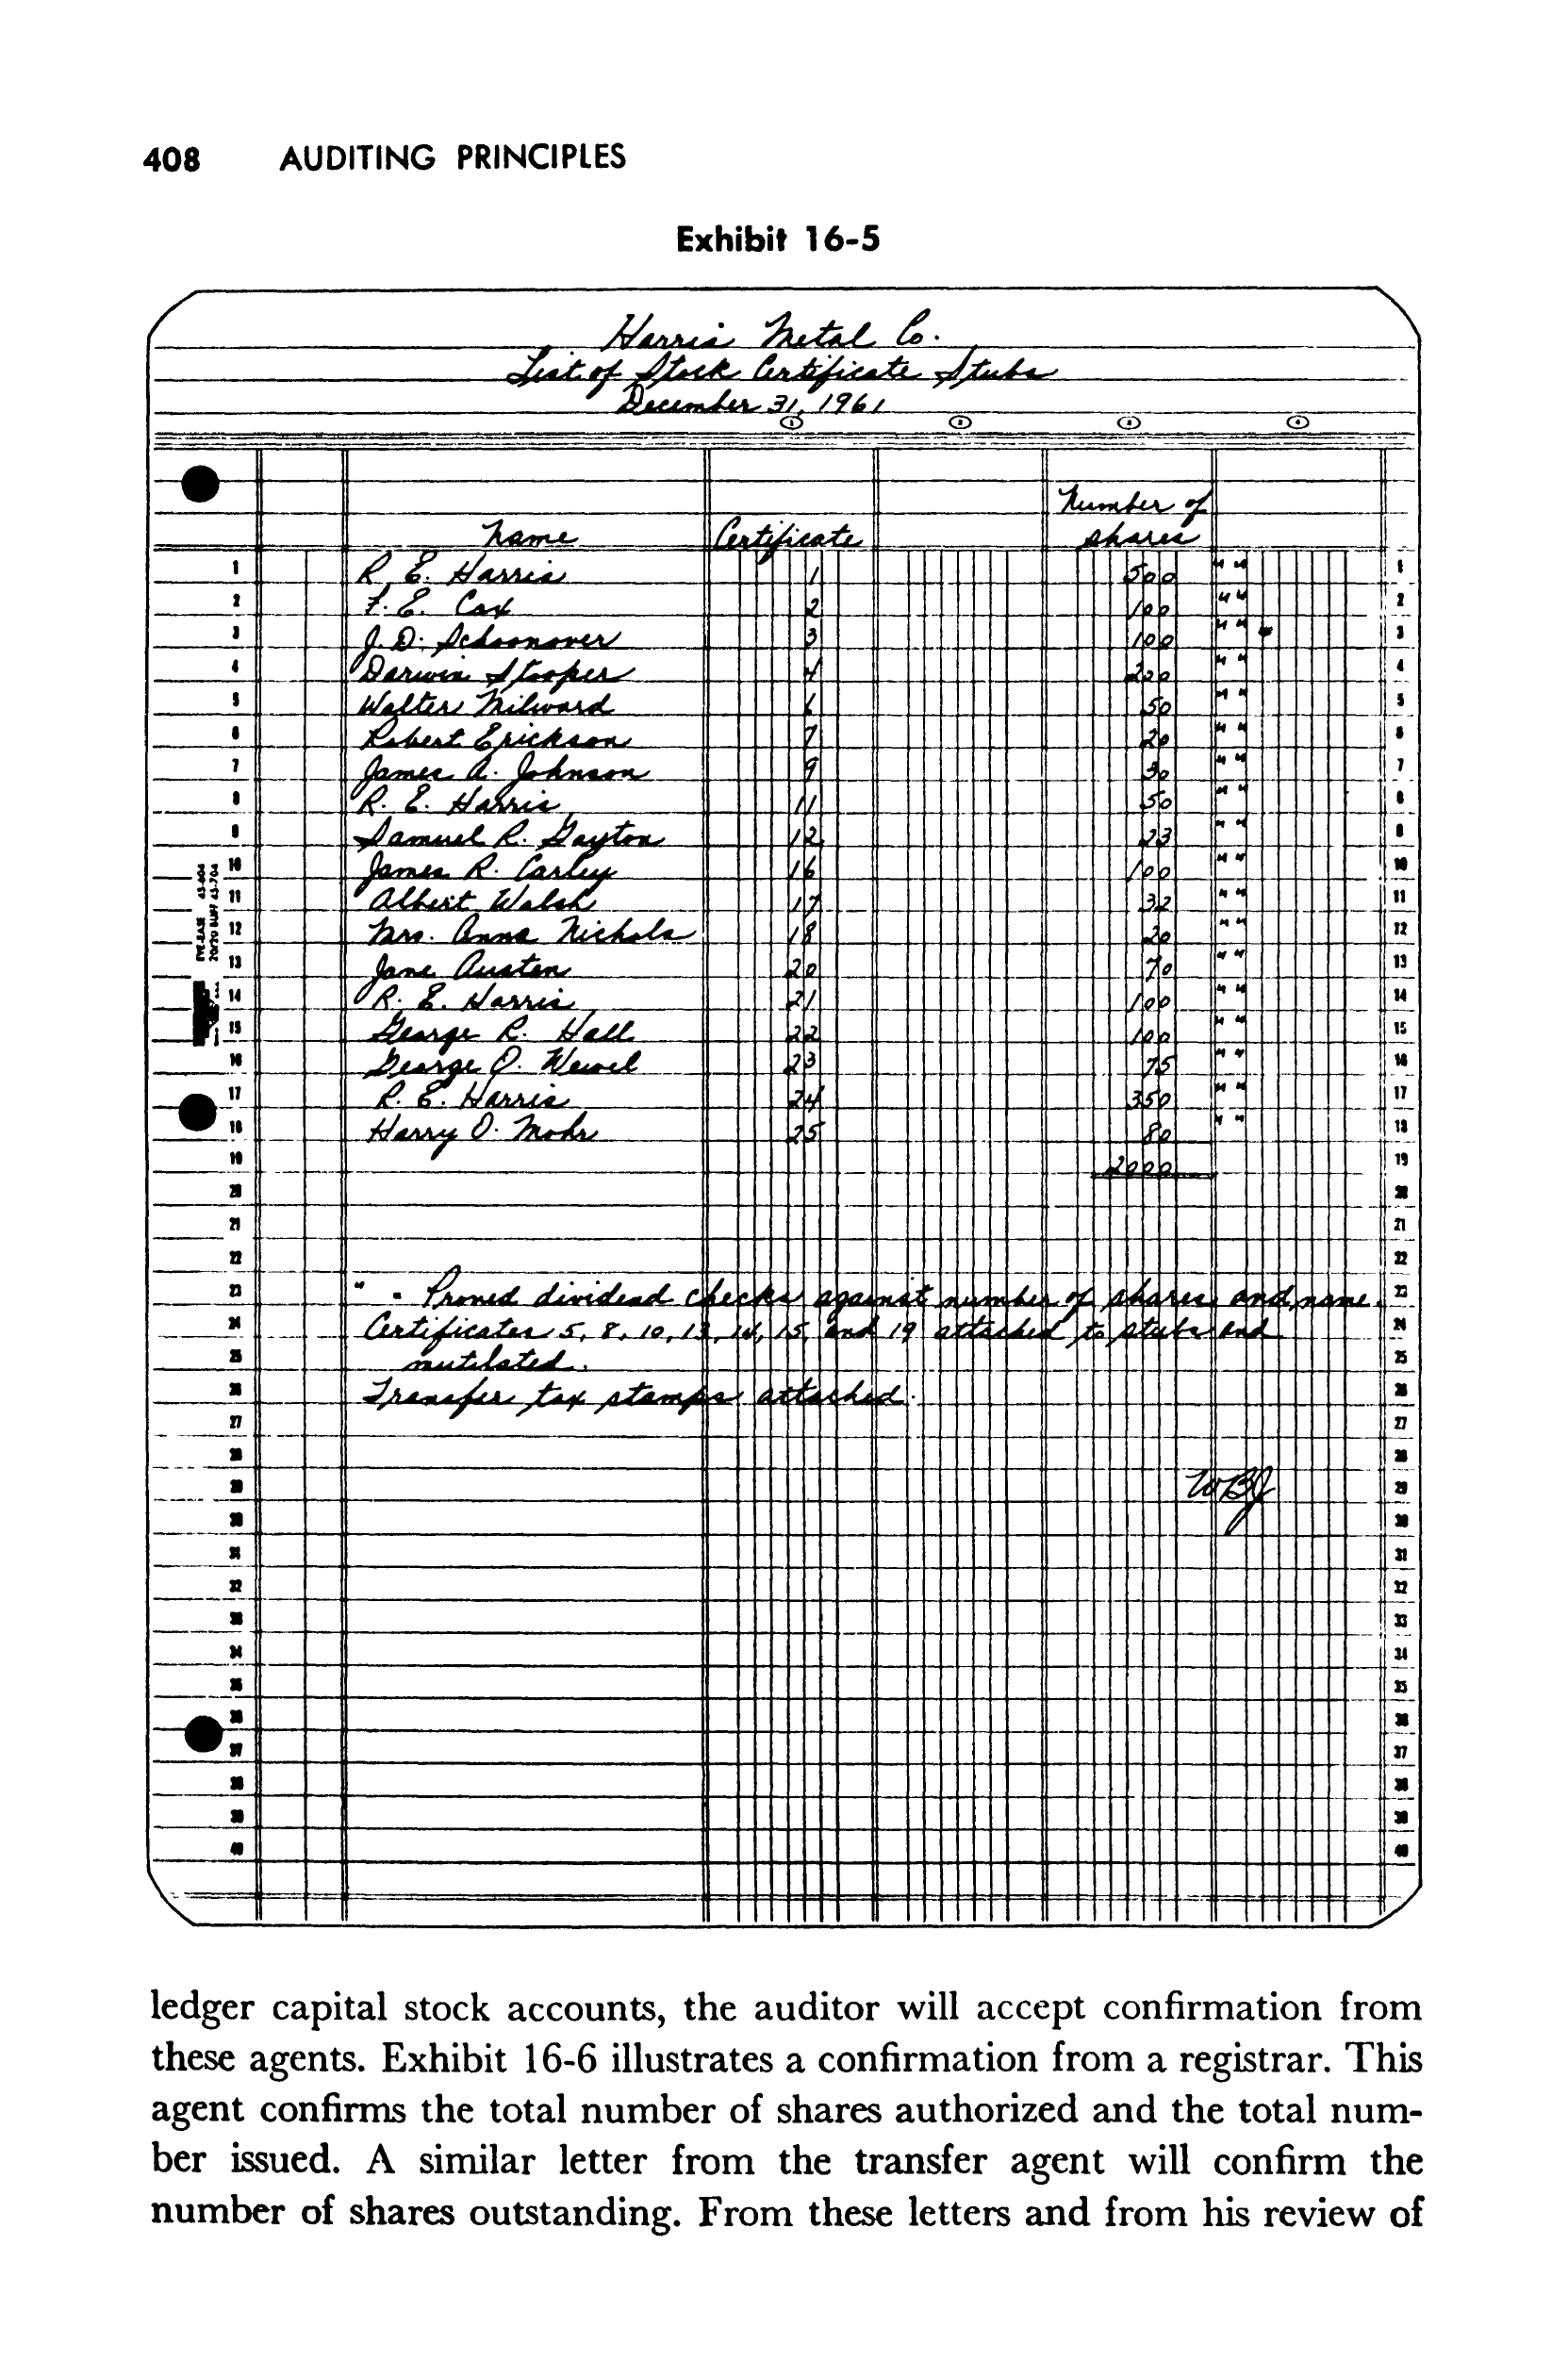 408 AUDITING PRINCIPLES
Exhibit 16-5
Harris Metal Co.
List of Stock Certificate Stubs
December 31, 1961
1 2 3 4
Number of
Name Certificate shares
1 R. E. Harris 1 500 " " 1
2 F. E. Cox 2 100 " " 2
3 J. D. Schoonover 3 100 " " 3
4 Darwin Stooper 4 200 " " 4
5 Walter Milward 6 50 " " 5
6 Robert Erickson 7 20 " " 6
7 James A. Johnson 9 30 " " 7
8 R. E. Harris 11 50 " " 8
9 Samuel R. Gayton 12 23 " " 9
10 James R. Carley 16 100 " " 10
11 Albert Walsh 17 32 " " 11
12 Mrs. Anna Nichols 18 20 " " 12
13 Jane Austen 20 70 " " 13
14 R. E. Harris 21 100 " " 14
15 George R. Hall 22 100 " " 15
16 George O. 23 75 " " 16
17 R. E. Harris 24 350 " " 17
18 Harry O. Mohr 25 80 " " 18
19 2000 19
20 20
21 21
22 22
23 " - Proved dividend checks against number of shares and name. 23
24 Certificates 5, 8, 10, 13, 14, 15, and 19 attached to stubs and 24
25 mutilated. 25
26 Transfer tax stamps attached. 26
27 27
28 28
29 WBJ 29
30 30
31 31
32 32
33 33
34 34
35 35
36 36
37 37
38 38
39 39
40 40
EYE-EASE 45-604
20/20 BUFF 45-704
ledger capital stock accounts, the auditor will accept confirmation from
these agents. Exhibit 16-6 illustrates a confirmation from a registrar. This
agent confirms the total number of shares authorized and the total num-
ber issued. A similar letter from the transfer agent will confirm the
number of shares outstanding. From these letters and from his review of